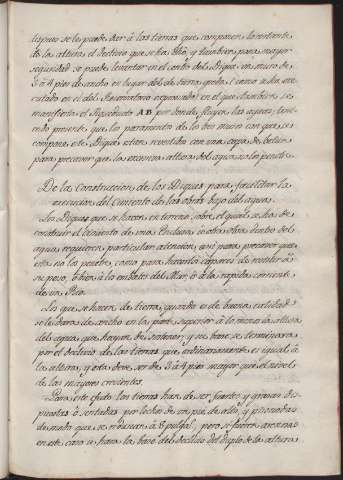 despues se le puede dar á las tierras que componen lo restante
de la altura el declivio que se ha dho, y tambien para mayor
seguridad se puede levantar en el centro del Dique un muro de
3 á 4 pies de ancho en lugar del de tierra greda, como se ha exe-
cutado en el del Reservatorio en el que tambien se
manifiesta el Aqueducto AB por donde fluyen las aguas; tenien-
do presente que los paramentos de los dos muros con que se
compone este Dique estan revestidos con una capa de betun
para precaver que la extrema altura del agua no los penetre.
De la Construccion de los Diques para facilitar la
execucion del Cimiento de las obras bajo del agua.
Los Diques que se hacen en terreno sobre el qual se ha de
construir el Cimiento de una Esclusa ú otra obra dentro del
agua, requieren particular atencion, assi para precaver que
esta no los penetre, como para hacerlos capaces de resistir á
su peso, ó bien á los embates del Mar, ó á la rapida corriente
de un Rio.
Los que se hacen de tierra, quando es de buena calidad
se les dara de ancho en la parte superior á lo menos la altura
del agua que hayan de sostener, y su base se terminara
por el declivio de las tierras que ordinariamente es igual á
la altura, y esta deve ser de 3 á 4 pies mayor que el nivel
de las mayores crecientes.
Para este efecto las tierras han de ser fuertes y grasas dis-
puestas ó sentadas por lechos de un pie de alto, y pisonadas
de modo que se reduzcan á 8 pulgas. pero si fueren arenosas
en este caso se hara la base del declivio del duplo de la altura